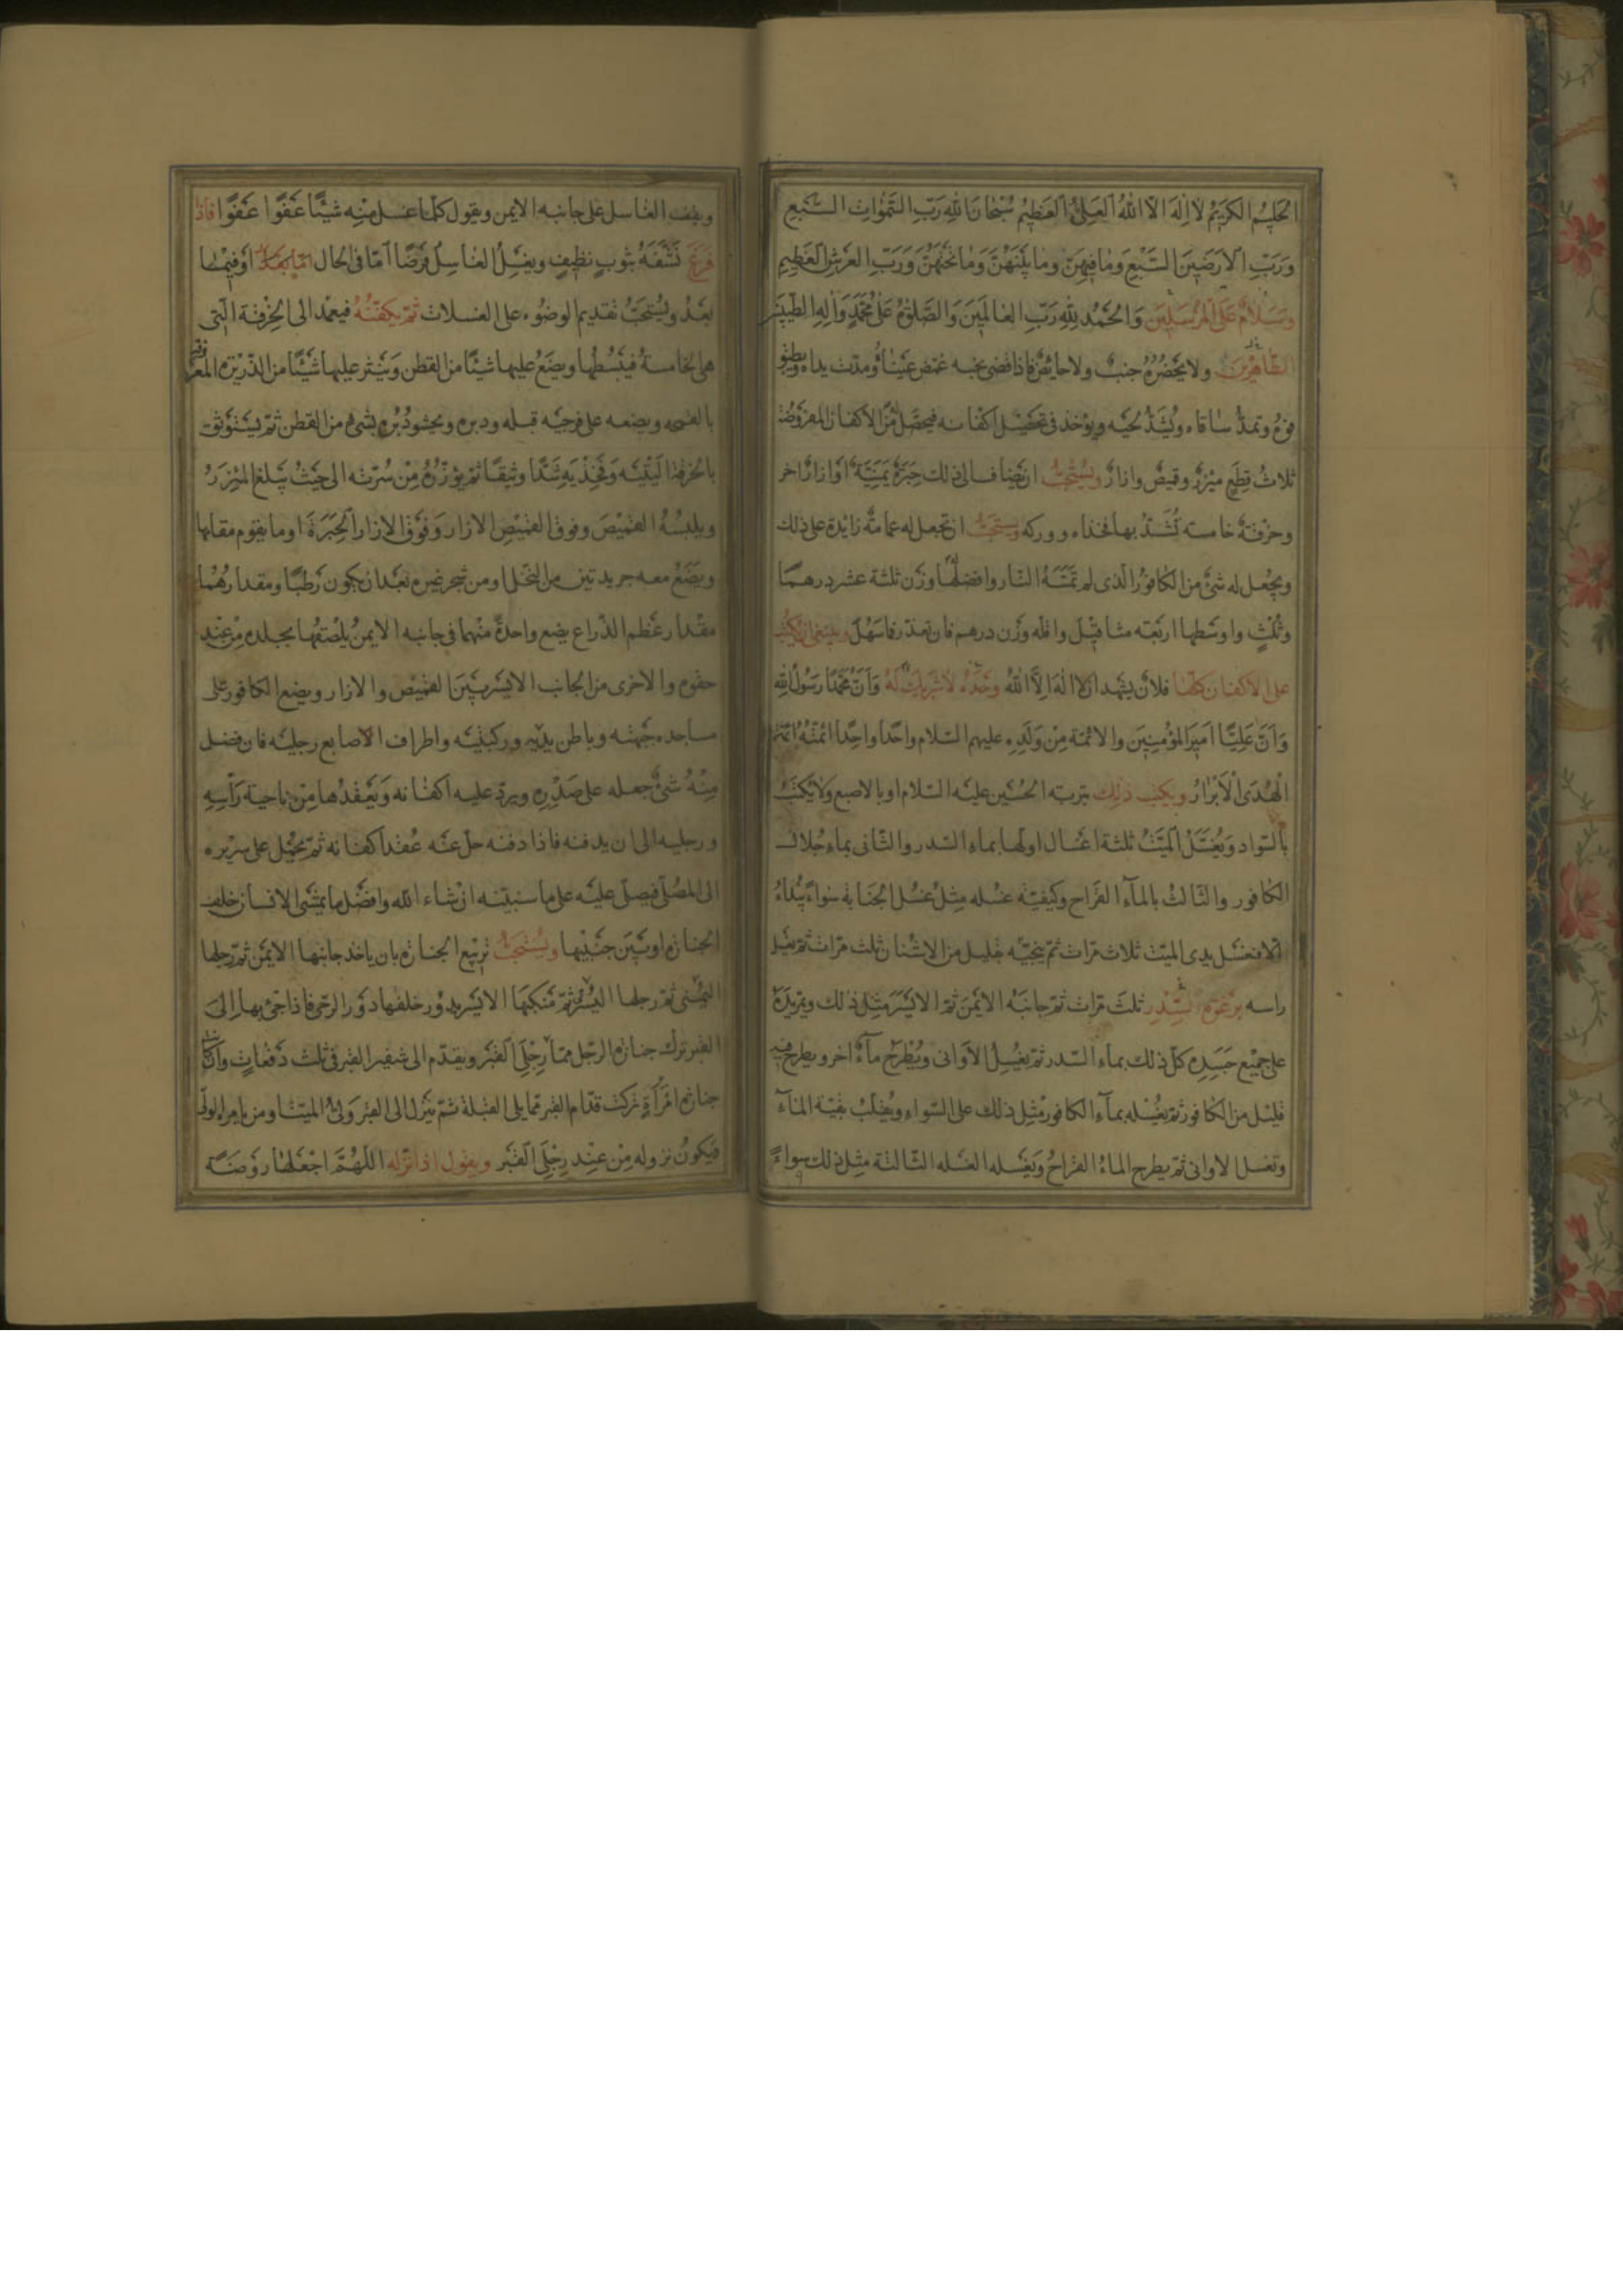 الحَلِيمُ الكَرِيمُ لا اِلهَ الّا اللهُ العَلِىُّ العَظِيمُ سُبْحانَ اللهِ رَبِّ السَّمٰواتِ السَّبْعِ
وَرَبِّ الاَرَضِينَ السَّبْعِ وَمٰا فِيهِنَّ وَمٰا بَيْنَهُنَّ وَمٰا تَحْتَهُنَّ وَرَبِّ العَرْشِ العَظِيمِ
وَسَلامٌ عَلَى المُرْسَلِينَ وَالحَمْدُ لِلّهِ رَبِّ العٰالَمِينَ وَالصَّلوةُ عَلىٰ مُحَمَّدٍ وَآلِهِ الطَّيِّبِينَ
الطّاهِرِينَ ولا يَحْضُرُهُ جنبٌ ولا حايضٌ فاذا قضى نحبه غمّض عَيْناهُ ومدّت يداه ويطبق
فوهُ وتمدّ ساقاه ويُشَدُّ لحيَه ويؤخذ فى تحصيل اكفانه فيحصّل مِنَ الاكفان المفروضة
ثلاثُ قِطَعٍ مِئْزرٌ وقميصٌ وازارٌ ويُسْتَحَبُّ ان يُضاف الى ذلك حِبَرَةٌ يَمَنِيَّةٌ اَوْ ازارٌ اخر
وخرْقةٌ خامسته تُشَدُّ بها فخذاه ووركه ويستحَبُّ ان تجعل له عمامةٌ زايدة على ذلك
ويجْعل له شئٌ من الكافورِ الذى لم تمَسَّهُ النّار وافضلُها وزن ثلثة عشر درهمًا
وثُلْثٍ واوسَطها اربعَة مثاقيل واقله وزن درهم فان تعذر فما سَهُلَ وينبغى ان يكتبُ
على الاكفان كلّها فلانٌ يشهد ان لا اله اِلاَّ اللهُ وَحْدَهُ لاشَرِيكَ لَهُ وَاَنَّ مُحَمَّدًا رَسُولُ اللهِ
وَاَنَّ عَلِيًّا اَمِيرُ المؤْمِنِينَ والائمّة مِنْ وَلَدِهِ عليهم السّلام واحَدًا واحِدًا ائمّتُهُ ائمّة
الْهُدَى الْاَبْرارُ ويكتب ذلِك بتربة الحُسَين عليْه السّلام او بالاصبع وَلا يُكتَبُ
بِالسَّواد وَيُغَسَّلُ المَيِّتُ ثلثة اغسال اولها بماء السّدر والثّانى بماء جُلال
الكافور والثّالثُ بالمآء القَراح وكَيْفيّة غسْله مِثْل غسْل الجَنابة سَواءٌ يُبْدَاءُ
اَوّلا فيغسَل يدى الميّت ثلاث مرّات ثمّ ينجيّه بقليل من الاشنان ثلث مرّات ثم يغسل
راسه برَغْوَةِ السِّدْرِ ثلث مرّات ثمّ جانبَه الايْمَنَ ثمّ الايْسَرَ مثل ذلك ويمرّ يدَهُ
على جميْع جَسَدِه كلّ ذلك بماء السّدر ثمّ يغْسلُ الاَوانى ويُطْرَح مآءٌ اخر ويطرح فيه
قليل من الكافور ثمّ يغْسله بمآء الكافور مثل ذلك على السّواء ويُقلبُ بقيّة المآء
وتغسل الاوانى ثمّ يطرح الماءُ القراحُ وَيغسّله الغسله الثّالثة مثل ذلك سواءً
ويقف الغاسل على جانبه الايمن ويقول كلّما غسل مِنْه شيئًا عَفْوًا عَفْوًا فَاِذا
فَرَغَ نَشَّفَهُ بثوبٍ نظِيفٍ ويغسِلُ الغاسِلُ فَرْضًا اَمّا فى الحال اَوْ فيما
بَعْدُ ويُسْتَحَبُّ تقديم الوضُوء على الغسلات ثمّ يكفِّنُهُ فيعمد الى الخِرْقة الّتى
هى الخامسة فيَبْسُطُها ويضَعُ عليها شيْئًا من القطن وَينثر عليها شَيْئًا من الذّريْرة المعروفة
بالقمحه ويضعه على فرجَيْه قبله ودبره ويحشو دُبُره بشئ من القطن ثمّ يَسْتَوْثق
بالخرقة اَلْيتيْه وَفَخِذَيه شَدًّا وثيقًا ثمّ يؤزّرُهُ مِنْ سُرّته الى حَيثُ يبلغ المئِزَرُ
ويلبسُهُ القَميْصَ وفوق القميْصِ الازار وَفَوْق الازار اَلحِبَرَةَ او ما يقوم مقامها
ويضَعُ معه جريدتين من النّخل او من شجر غيره بَعْد ان يكون رَطبًا ومقدارهُما
مقْدار عَظم الذّراع يضع واحدةً منهما فى جانبه الايمن يُلصقُها بجلده مِنْ عِنْدِ
حقوه والاخرى من الجانب الايْسَر بَيْنَ القميْص والازار ويضع الكافور عَلى
مساجده جَبْهته وباطن يديْه وركبتَيْه واطراف الاصابع رجلَيْه فان فضل
مِنْهُ شئ جعله على صَدْرِه ويردّ عليه اكفانه وَيَعْقدُها مِنْ ناحية رَأسِهِ
ورجليه الى ان يدفنه فاذا دفنه حلّ عَنْه عُقد اكفانه ثمّ يُحمَل على سريره
الى المصَلّى فيصلّى عليْه على ما سنبيّنه انْ شاء الله وافضَل ما يمشى الانسان خلف
الجنازه اوبَيْن جَنْبيها ويُسْتَحَبُّ تربيع الجنازة بان ياخذ جانبها الايمَن ثمّ رجلها
اليُمْنى ثمّ رجلها اليُسْرى ثمّ مَنكبَها الايْسَر يدُور خلفها دَوْر الرّحى فاذا جئ بها اِلىَ
القبر ترك جنازة الرّجل ممّا يلى رِجْلَىِ القَبْر ويقدّم الى شفير القبر فى ثلث دَفعاتٍ وَاِنْ كانت
جنازة امْرَأةٍ تركت قدّام القبر ممّا يلى القبلة ثمّ يَنْزل الى القبر وَلىُّ الميّت او من يامره الولىّ
فَيكونُ نزوله مِنْ عِنْد رِجْلَىِ القَبْر ويقول اذا نزله اللّهُمَّ اجْعَلْها رَوْضَةً